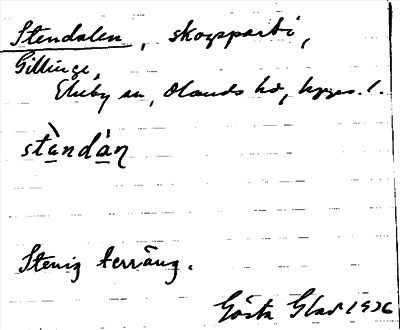 Stendalen, skogsparti,
Gillinge,
Ekeby sn, Olands hd, Upps. l.
stàndàn
Stenig terräng.
Gösta Glad 1926